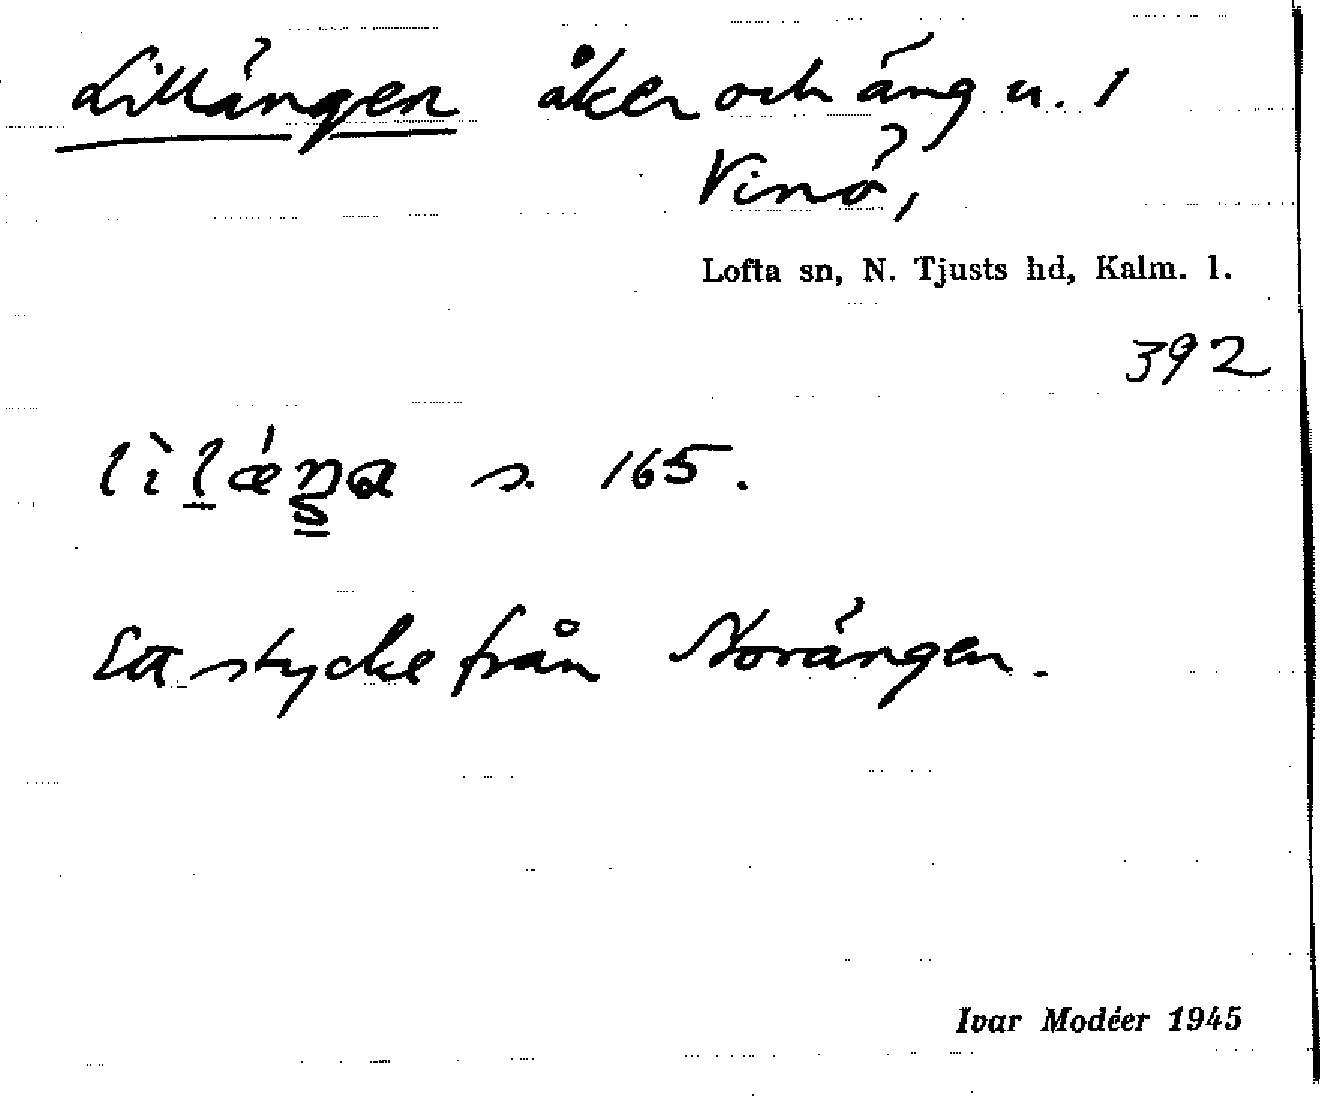 Lillängen åker och äng u. 1
Vinö,
Lofta sn, N. Tjusts hd, Kalm. l.
392
s. 165.
Ett stycke från Norängen.
Ivar Modéer 1945